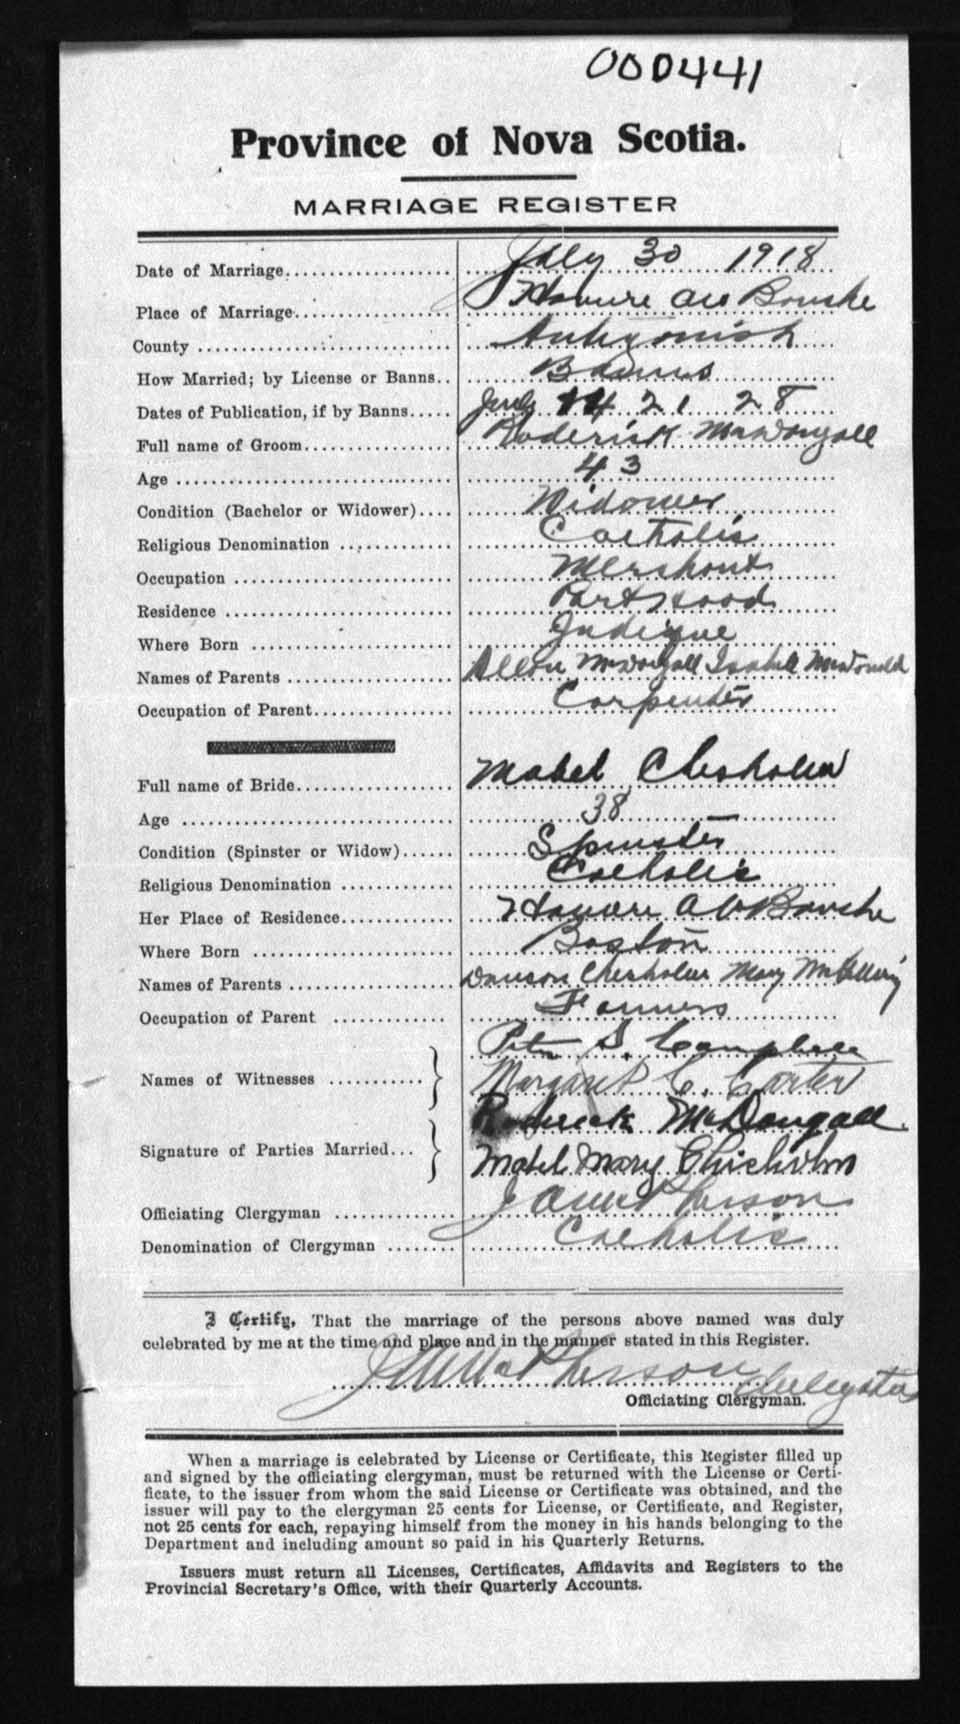 000441
Province of Nova Scotia.
MARRIAGE REGISTER
Date of Marriage.................... July 30 1918
Place of Marriage.................. Havure au Boushe
County .............................. Antigonish
How Married; by License or Banns.. Banns
Dates of Publication, if by Banns..... July 14 21 28
Full name of Groom.................. Roderick MacDougall
Age ................................ 43
Condition (Bachelor or Widower).... Widower
Religious Denomination ............. Catholic
Occupation ......................... Merchant
Residence .......................... Port Hood
Where Born ........................ Judique
Names of Parents ................... Allan McDougall Isabell MacDonald
Occupation of Parent................. Carpenter
Full name of Bride................... Mabel Chisholm
Age ................................ 38
Condition (Spinster or Widow)...... Spinster
Religious Denomination ............. Catholic
Her Place of Residence.............. Havure au Boushe
Where Born ......................... Boston
Names of Parents ................... Chisholm Mary
Occupation of Parent ............... Farmers
Names of Witnesses ........... } Peter S. Campbell
Margaret C. Carter
Signature of Parties Married... } Roderick McDougall.
Mabel Mary Chisholm
Officiating Clergyman ...............
Denomination of Clergyman ........ Catholic
I Certify, That the marriage of the persons above named was duly
celebrated by me at the time and place and in the manner stated in this Register.
MacPherson
Officiating Clergyman.
When a marriage is celebrated by License or Certificate, this Register filled up
and signed by the officiating clergyman, must be returned with the License or Certi-
ficate, to the issuer from whom the said License or Certificate was obtained, and the
issuer will pay to the clergyman 25 cents for License, or Certificate, and Register,
not 25 cents for each, repaying himself from the money in his hands belonging to the
Department and including amount so paid in his Quarterly Returns.
Issuers must return all Licenses, Certificates, Affidavits and Registers to the
Provincial Secretary's Office, with their Quarterly Accounts.